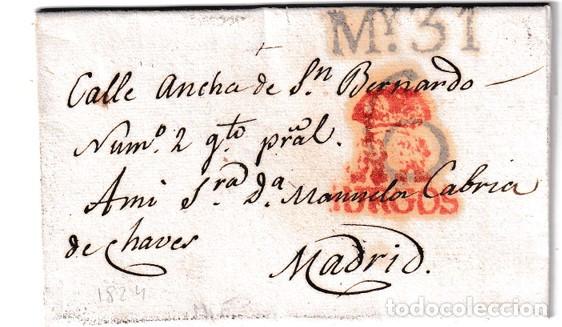 My. 31
Calle Ancha de Sn. Bernardo
Numo. 2 qto pral.
A mi Sra. Da. Manuela Cabria
de Chaves
BURGOS
Madrid.
1824
todocoleccion